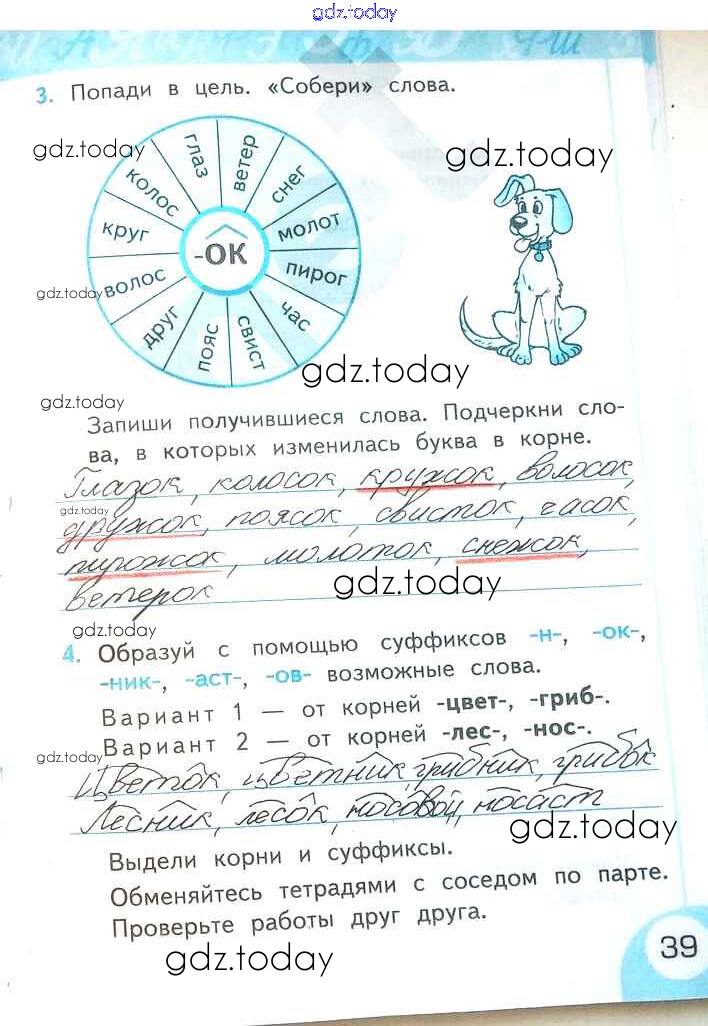 gdz.today
3. Попади в цель. «Собери» слова.
gdz.today
gdz.today
глаз
ветер
снег
молот
пирог
час
свист
пояс
друг
волос
круг
колос
-ОК
gdz.today
gdz.today
gdz.today
Запиши получившиеся слова. Подчеркни сло-
ва, в которых изменилась буква в корне.
Глазок, колосок, кружок, волосок,
gdz.today
дружок, поясок, свисток, часок,
пирожок, молоток, снежок,
gdz.today
ветерок
gdz.today
4. Образуй с помощью суффиксов -н-, -ок-,
-ник-, -аст-, -ов- возможные слова.
Вариант 1 — от корней -цвет-, -гриб-.
Вариант 2 — от корней -лес-, -нос-.
gdz.today
Цветок, цветник, грибник, грибок
Лесник, лесок, носовой, носаст
gdz.today
Выдели корни и суффиксы.
Обменяйтесь тетрадями с соседом по парте.
Проверьте работы друг друга.
39
gdz.today